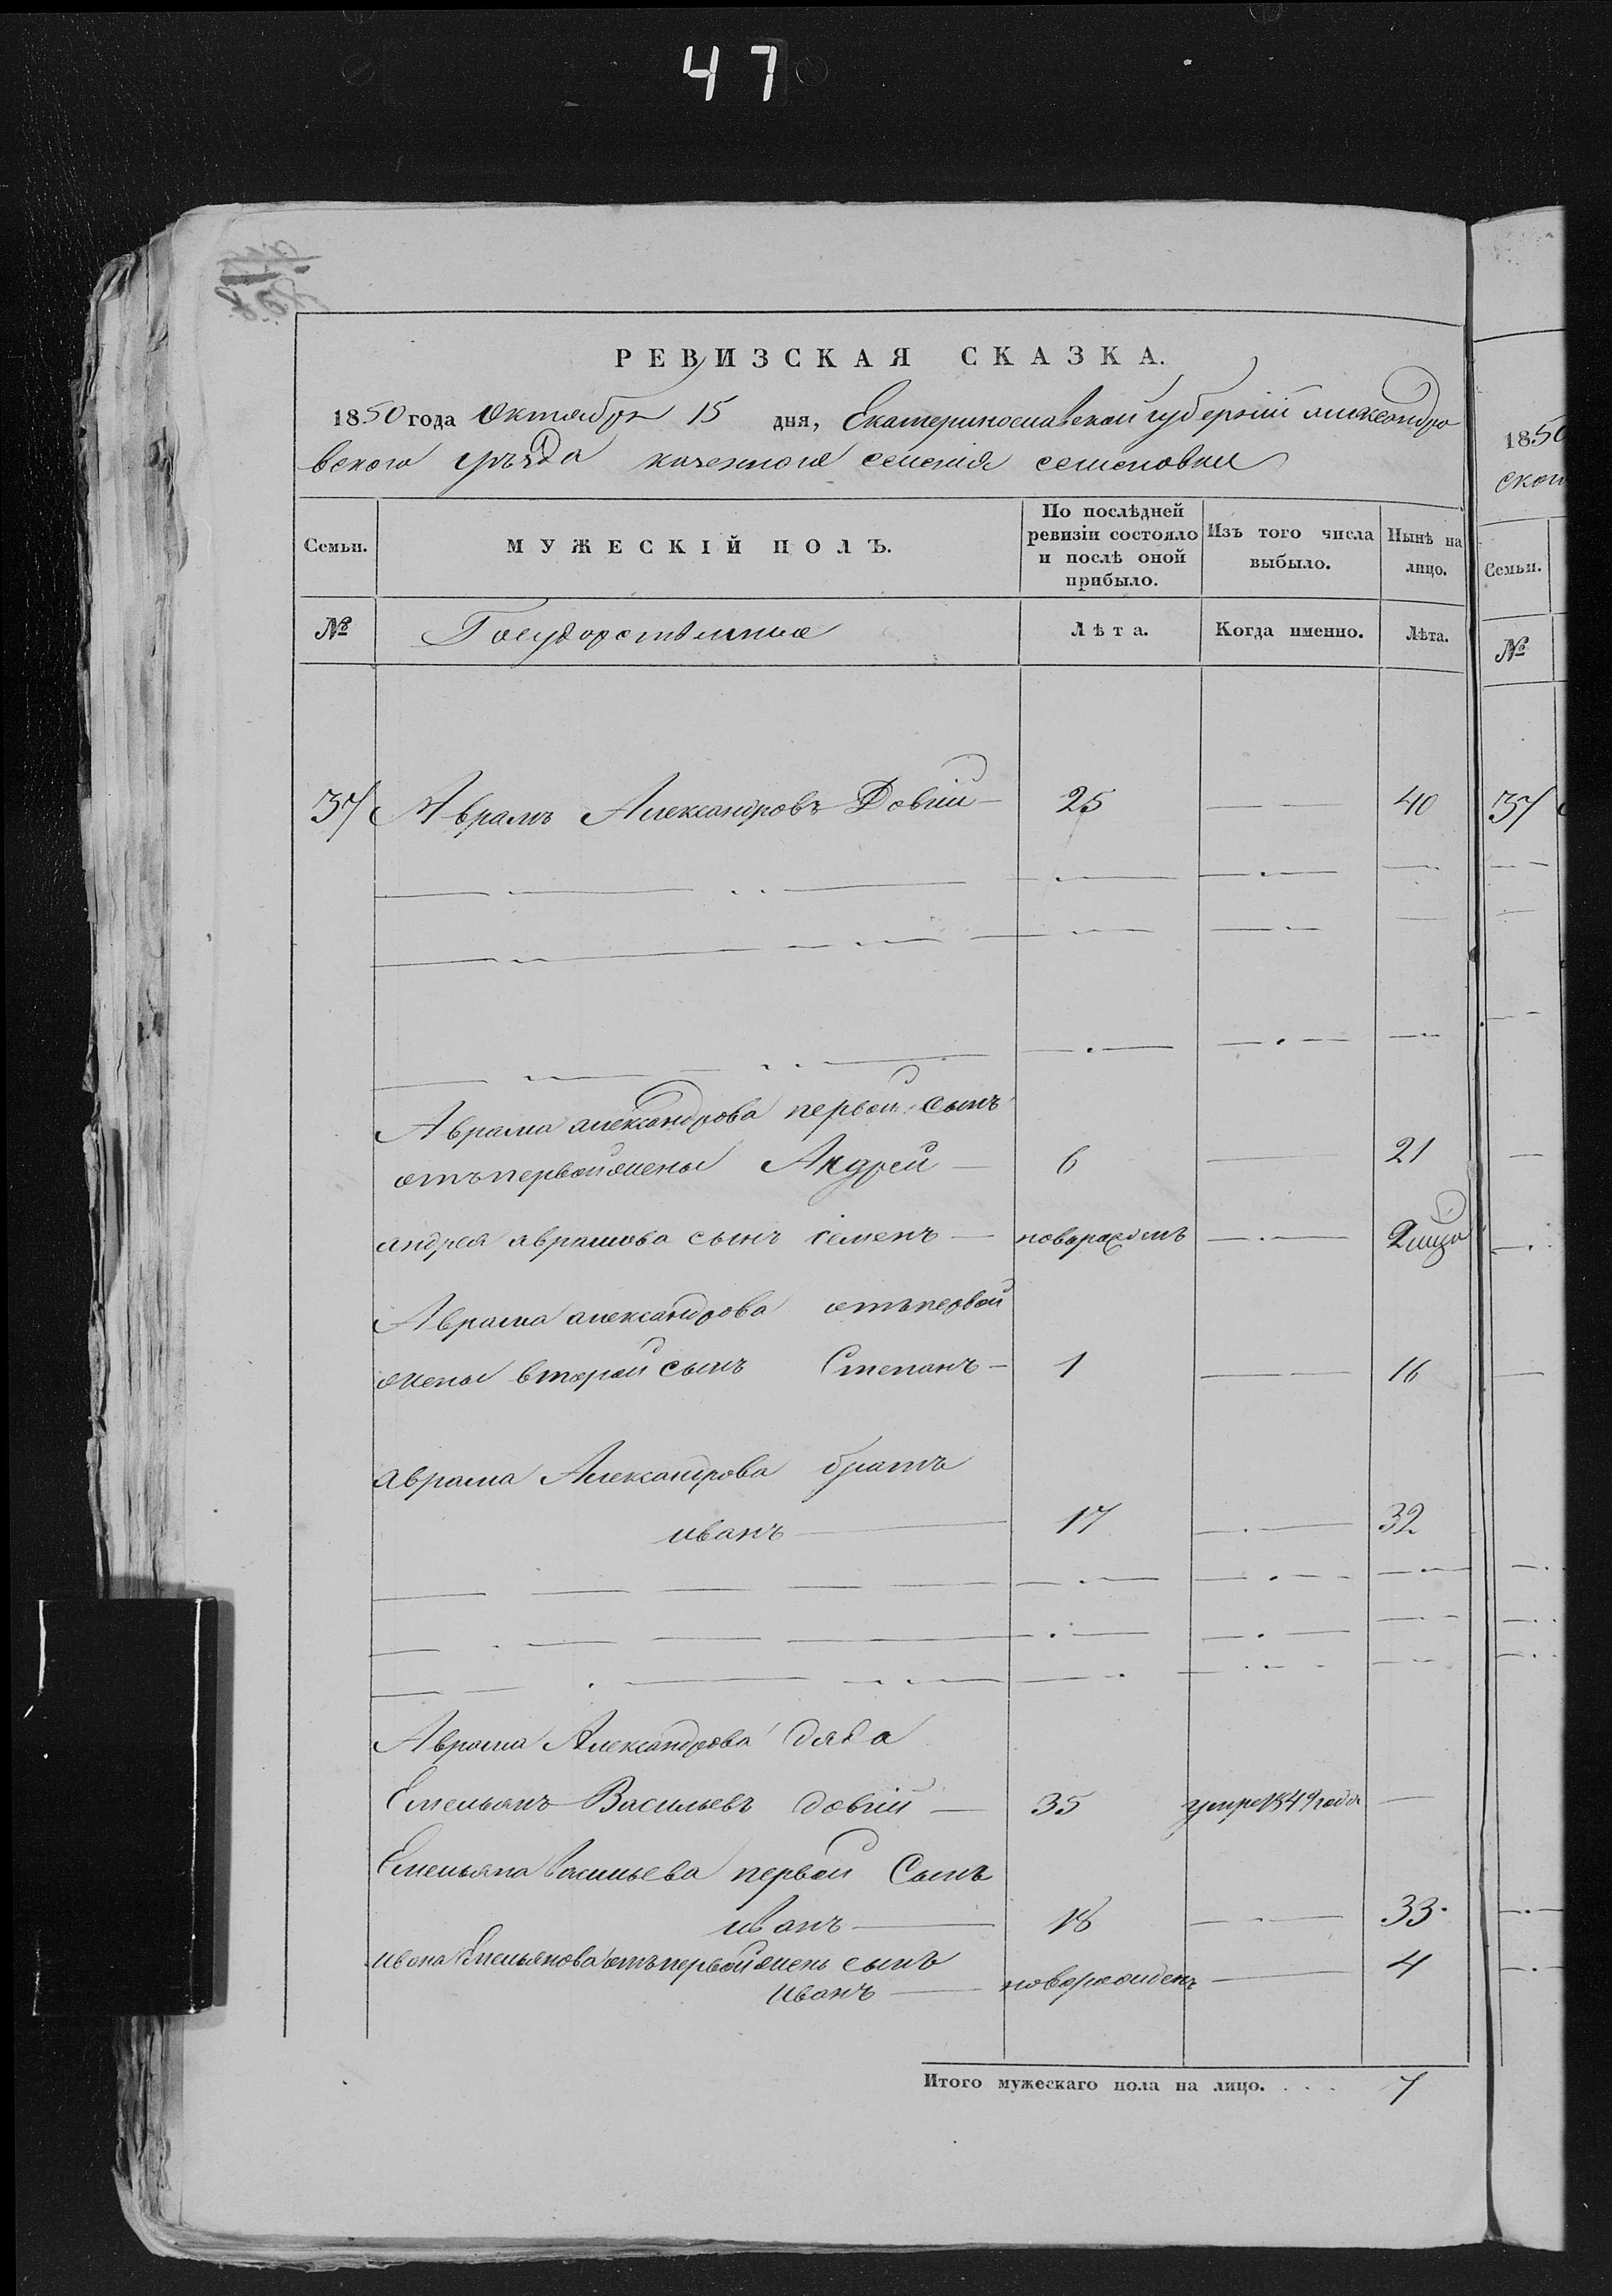 47
РЕВИЗСКАЯ СКАЗКА.
1850 года Октября 15 дня, Екатеринославской губерніи александро
вского уѣзда казенного селенія семеновки
Семьи. МУЖЕСКІЙ ПОЛЪ. По послѣдней ревизіи состояло и послѣ оной прибыло. Изъ того числа выбыло. Нынѣ на лицо.
№ Государственные Лѣта. Когда именно. Лѣта.
37 Аврамъ Александровъ Довгій 25 — 40
Аврама александрова первой сынъ
отъ первой жены Андрей — 6 — 21
андрея аврамова сынъ семенъ — новорожденъ — 2
Аврама александрова отъ первой
жены второй сынъ Степанъ — 1 — 16
аврама Александрова братъ
иванъ — 17 — 32
Аврама Александрова дядя
Емельянъ Васильевъ довгій — 35 умре 1849 года —
Емельяна Васильева первой Сынъ
иванъ — 18 — 33
ивана Емельянова отъ первой жены сынъ
иванъ — новорожденъ — 4
Итого мужескаго пола на лицо. . . . 7
1850
ской
Семьи.
№
37